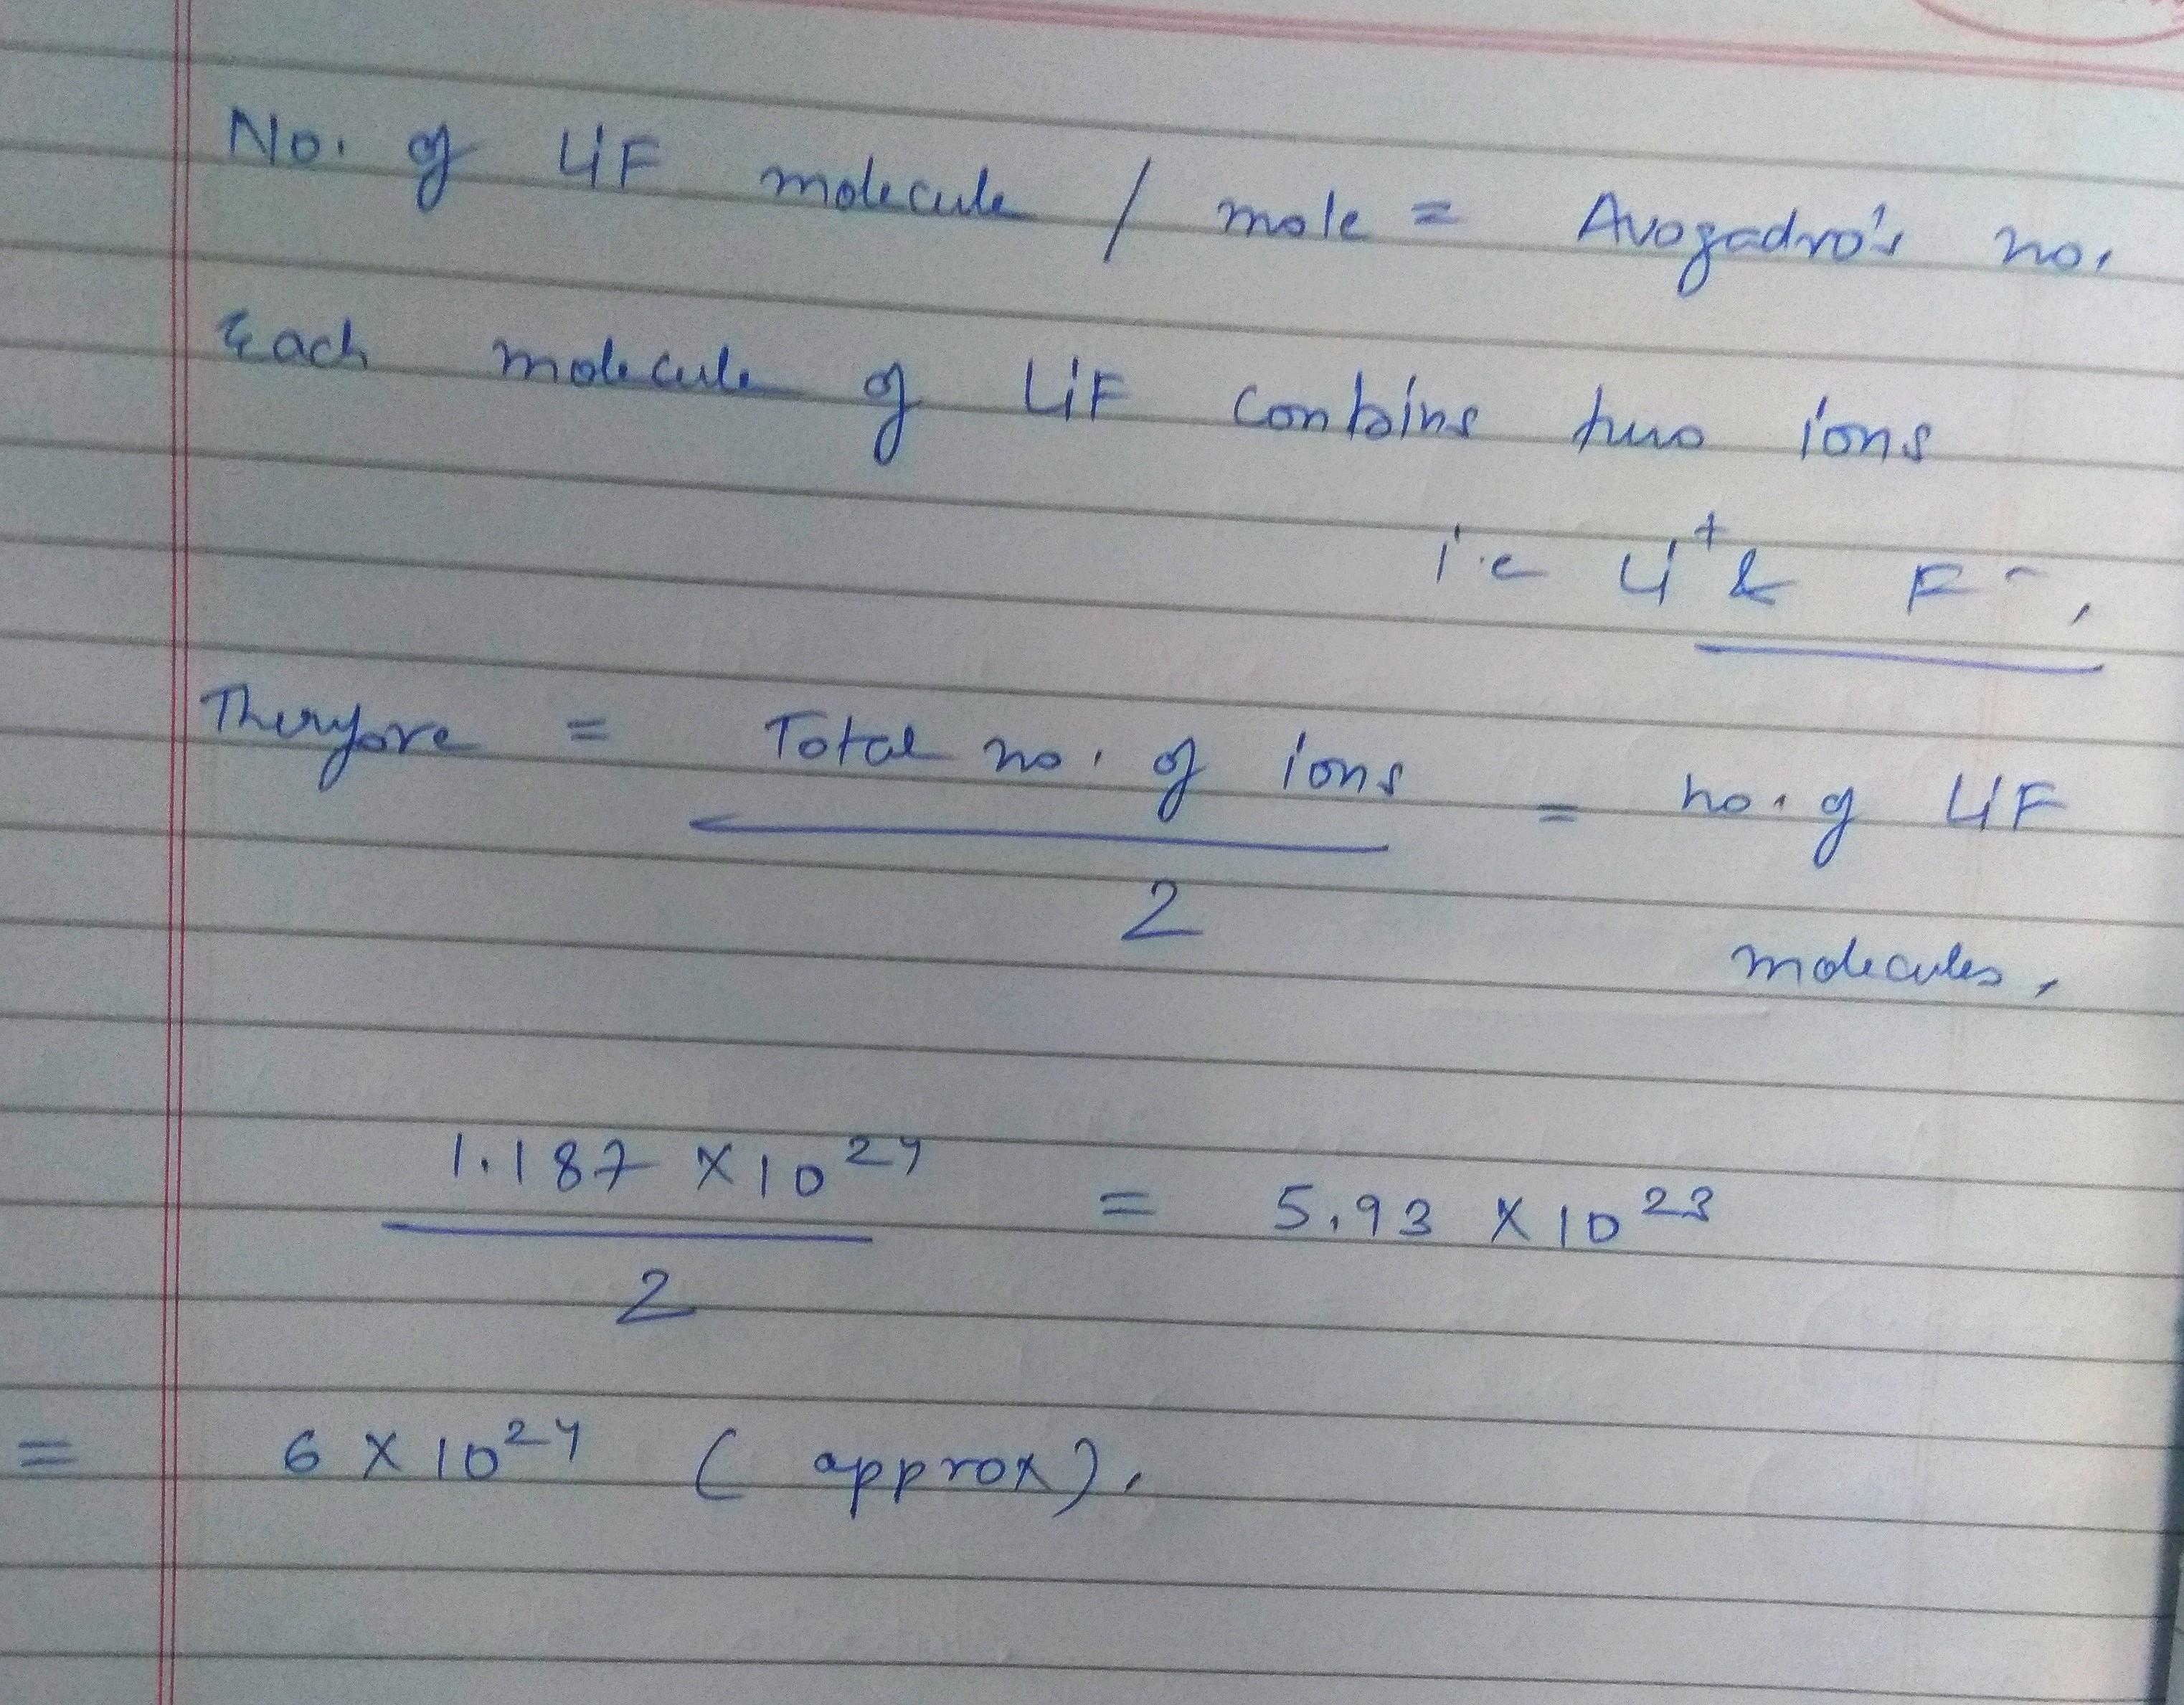 No. of LiF molecule / mole = Avogadro's no.
Each molecule of LiF contains two ions
i.e Li⁺ & F⁻.
Therefore = Total no. of ions / 2 = no. of LiF
molecules.
1.187 × 10²⁴ / 2 = 5.93 × 10²³
= 6 × 10²⁴ (approx).